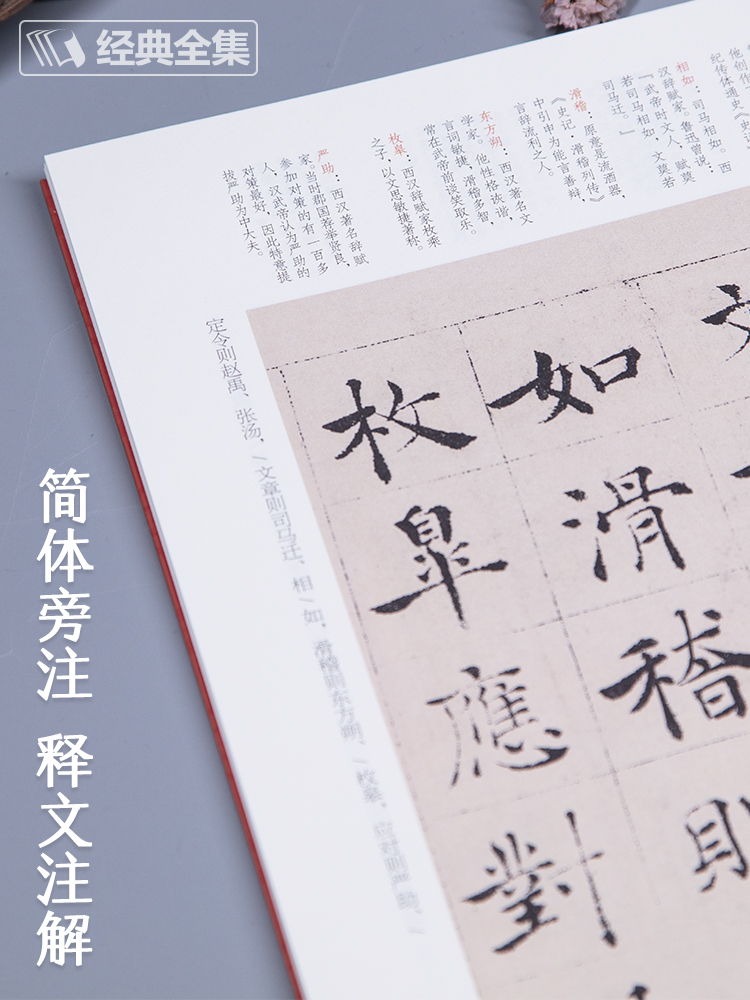 经典全集
纪传体通史《史
相如：司马相如。西
汉辞赋家。鲁迅曾说：
『武帝时文人，赋莫
若司马相如，文莫若
司马迁。』
滑稽：原意是流酒器，
《史记·滑稽列传》
中引申为能言善辩，
言辞流利之人。
东方朔：西汉著名文
学家。他性格诙谐，
言词敏捷，滑稽多智，
常在武帝前谈笑取乐。
枚皋：西汉辞赋家枚乘
之子，以文思敏捷著称。
严助：西汉著名辞赋
家，当时郡国荐举贤良，
参加对策的有一百多
人，汉武帝认为严助的
对策最好，因此特意提
拔严助为中大夫。
如滑稽則
枚皐應對
定令则赵禹、张汤，/文章则司马迁、相/如，滑稽则东方朔、/枚皋，应对则严助、/
简体旁注 释文注解